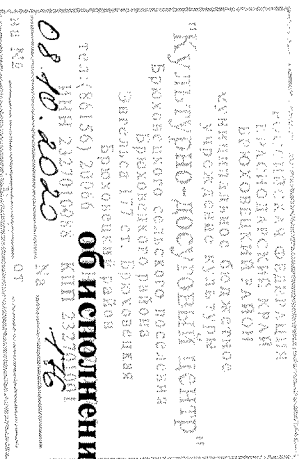 РОССИЙСКАЯ ФЕДЕРАЦИЯ
КРАСНОДАРСКИЙ КРАЙ
БРЮХОВЕЦКИЙ РАЙОН
муниципальное бюджетное
учреждение культуры
"КУЛЬТУРНО-ДОСУГОВЫЙ ЦЕНТР"
Брюховецкого сельского поселения
Брюховецкого района
Энгельса 177 ст. Брюховецкая
Брюховецкий район
тел.(86156) 20066
ИНН КПП
08.10.2020 № 176
на № от
об исполнени